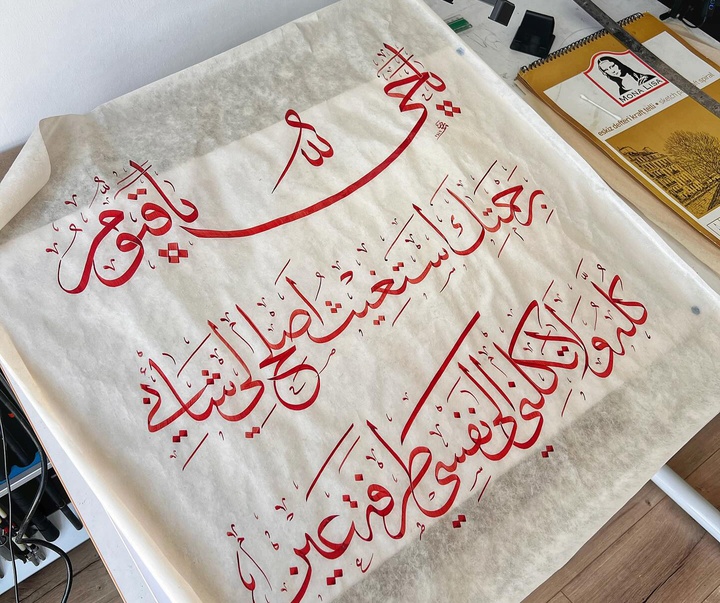 ياحي الله ياقيوم
برحمتك استغيث اصلح لي شاني
كله ولا تكلني الى نفسي طرفة عين
MONA LISA
eskiz defteri kraft telli • sketch pad kraft spiral